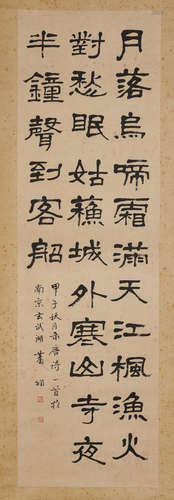 月落烏啼霜滿天江楓漁火
對愁眠姑蘓城外寒山寺夜
半鐘聲到客船
甲子秋月录唐诗一首於
南京玄武湖蕭